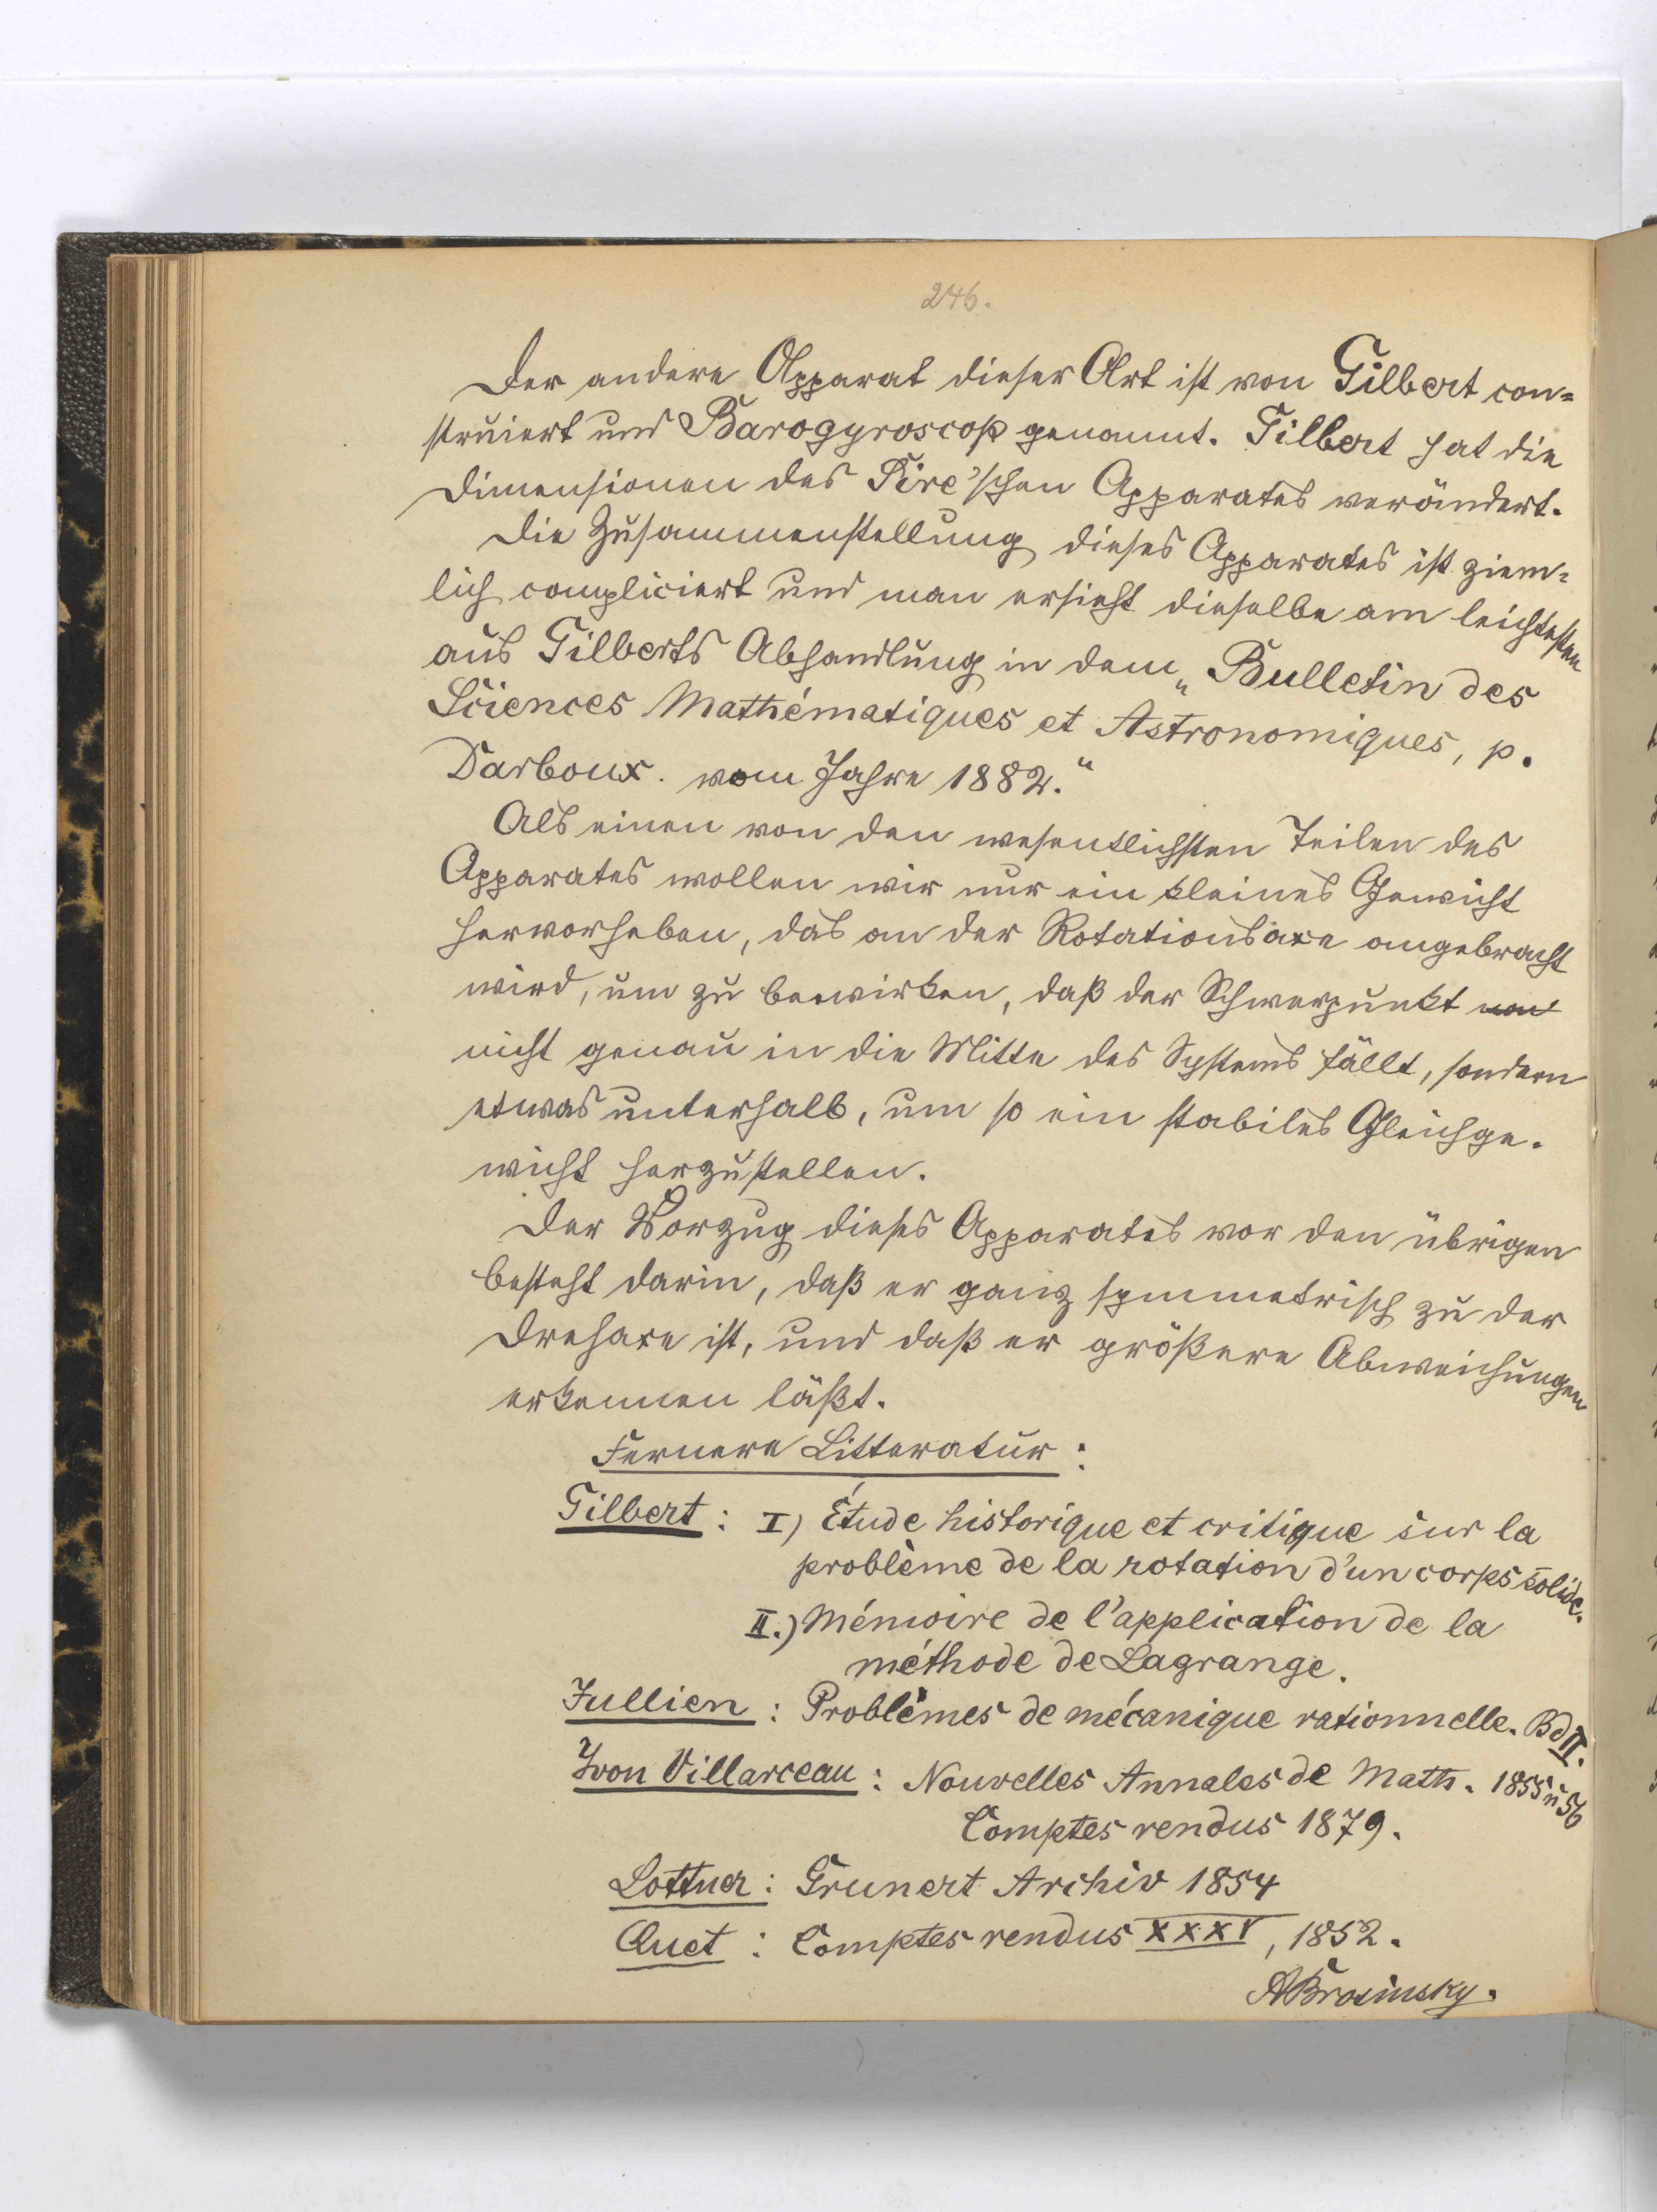 246.
Der andere Apparat dieser Art ist von Gilbert con=
struiert und Barogyroscop genannt. Gilbert hat die
Dimensionen des Sire'schen Apparates verändert.
Die Zusammenstellung dieses Apparates ist ziem=
lich compliciert und man ersieht dieselbe am leichtesten
aus Gilberts Abhandlung in dem „Bulletin des
Sciences Mathématiques et Astronomiques, p.
Darboux. vom Jahre 1882."
Als einen von den wesentlichsten Teilen des
Apparates wollen wir nur ein kleines Gewicht
hervorheben, das an der Rotationsaxe angebracht
wird, um zu bewirken, daß der Schwerpunkt
nicht genau in die Mitte des Systems fällt, sondern
etwas unterhalb, um so ein stabiles Gleichge-
wicht herzustellen.
Der Vorzug dieses Apparates vor den übrigen
besteht darin, daß er ganz symmetrisch zu der
Drehaxe ist, und daß er größere Abweichungen
erkennen läßt.
Fernere Litteratur:
Gilbert: I) Étude historique et critique sur la
problème de la rotation d'un corps solide.
II.) Mémoire de l'application de la
méthode de Lagrange.
Jullien: Problèmes de mécanique rationnelle. Bd II.
Yvon Villarceau: Nouvelles Annales de Math. 1855 u 56
Comptes rendus 1879.
Lottner: Grunert Archiv 1854
Quet: Comptes rendus XXXV, 1852.
ABrosinsky.